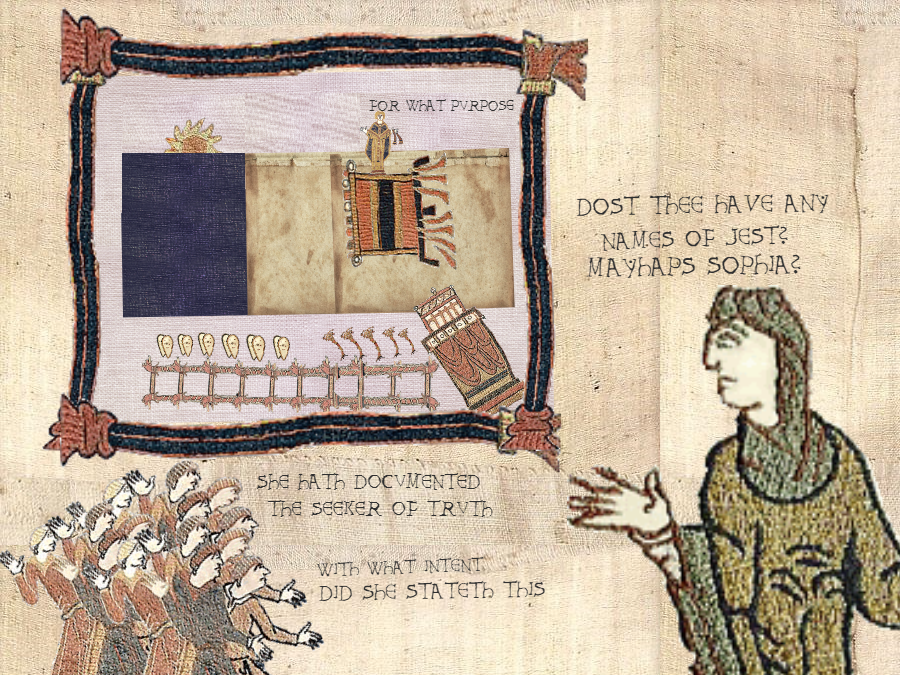 FOR WHAT PVRPOSE
DOST THEE HAVE ANY
NAMES OF JEST?
MAYHAPS SOPHIA?
SHE HATH DOCVMENTED
THE SEEKER OF TRVTH
WITH WHAT INTENT
DID SHE STATETH THIS